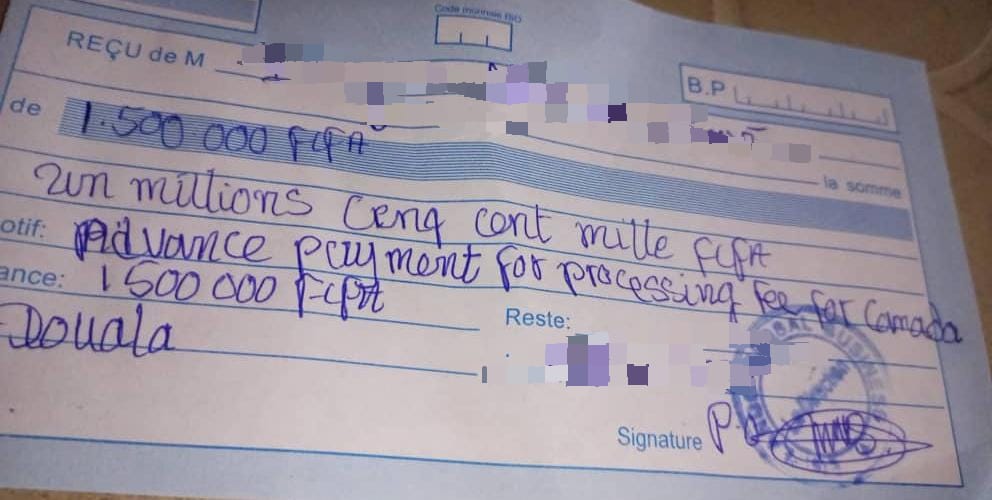 Code monnaie ISO
REÇU de M
B.P
la somme
de 1.500 000 FCFA
un millions Cenq cent mille FCFA
otif: Advance payment for processing Fee for Camada
ance: 1500 000 FCFA
Reste:
Douala
BAL BUSINESS
Signature